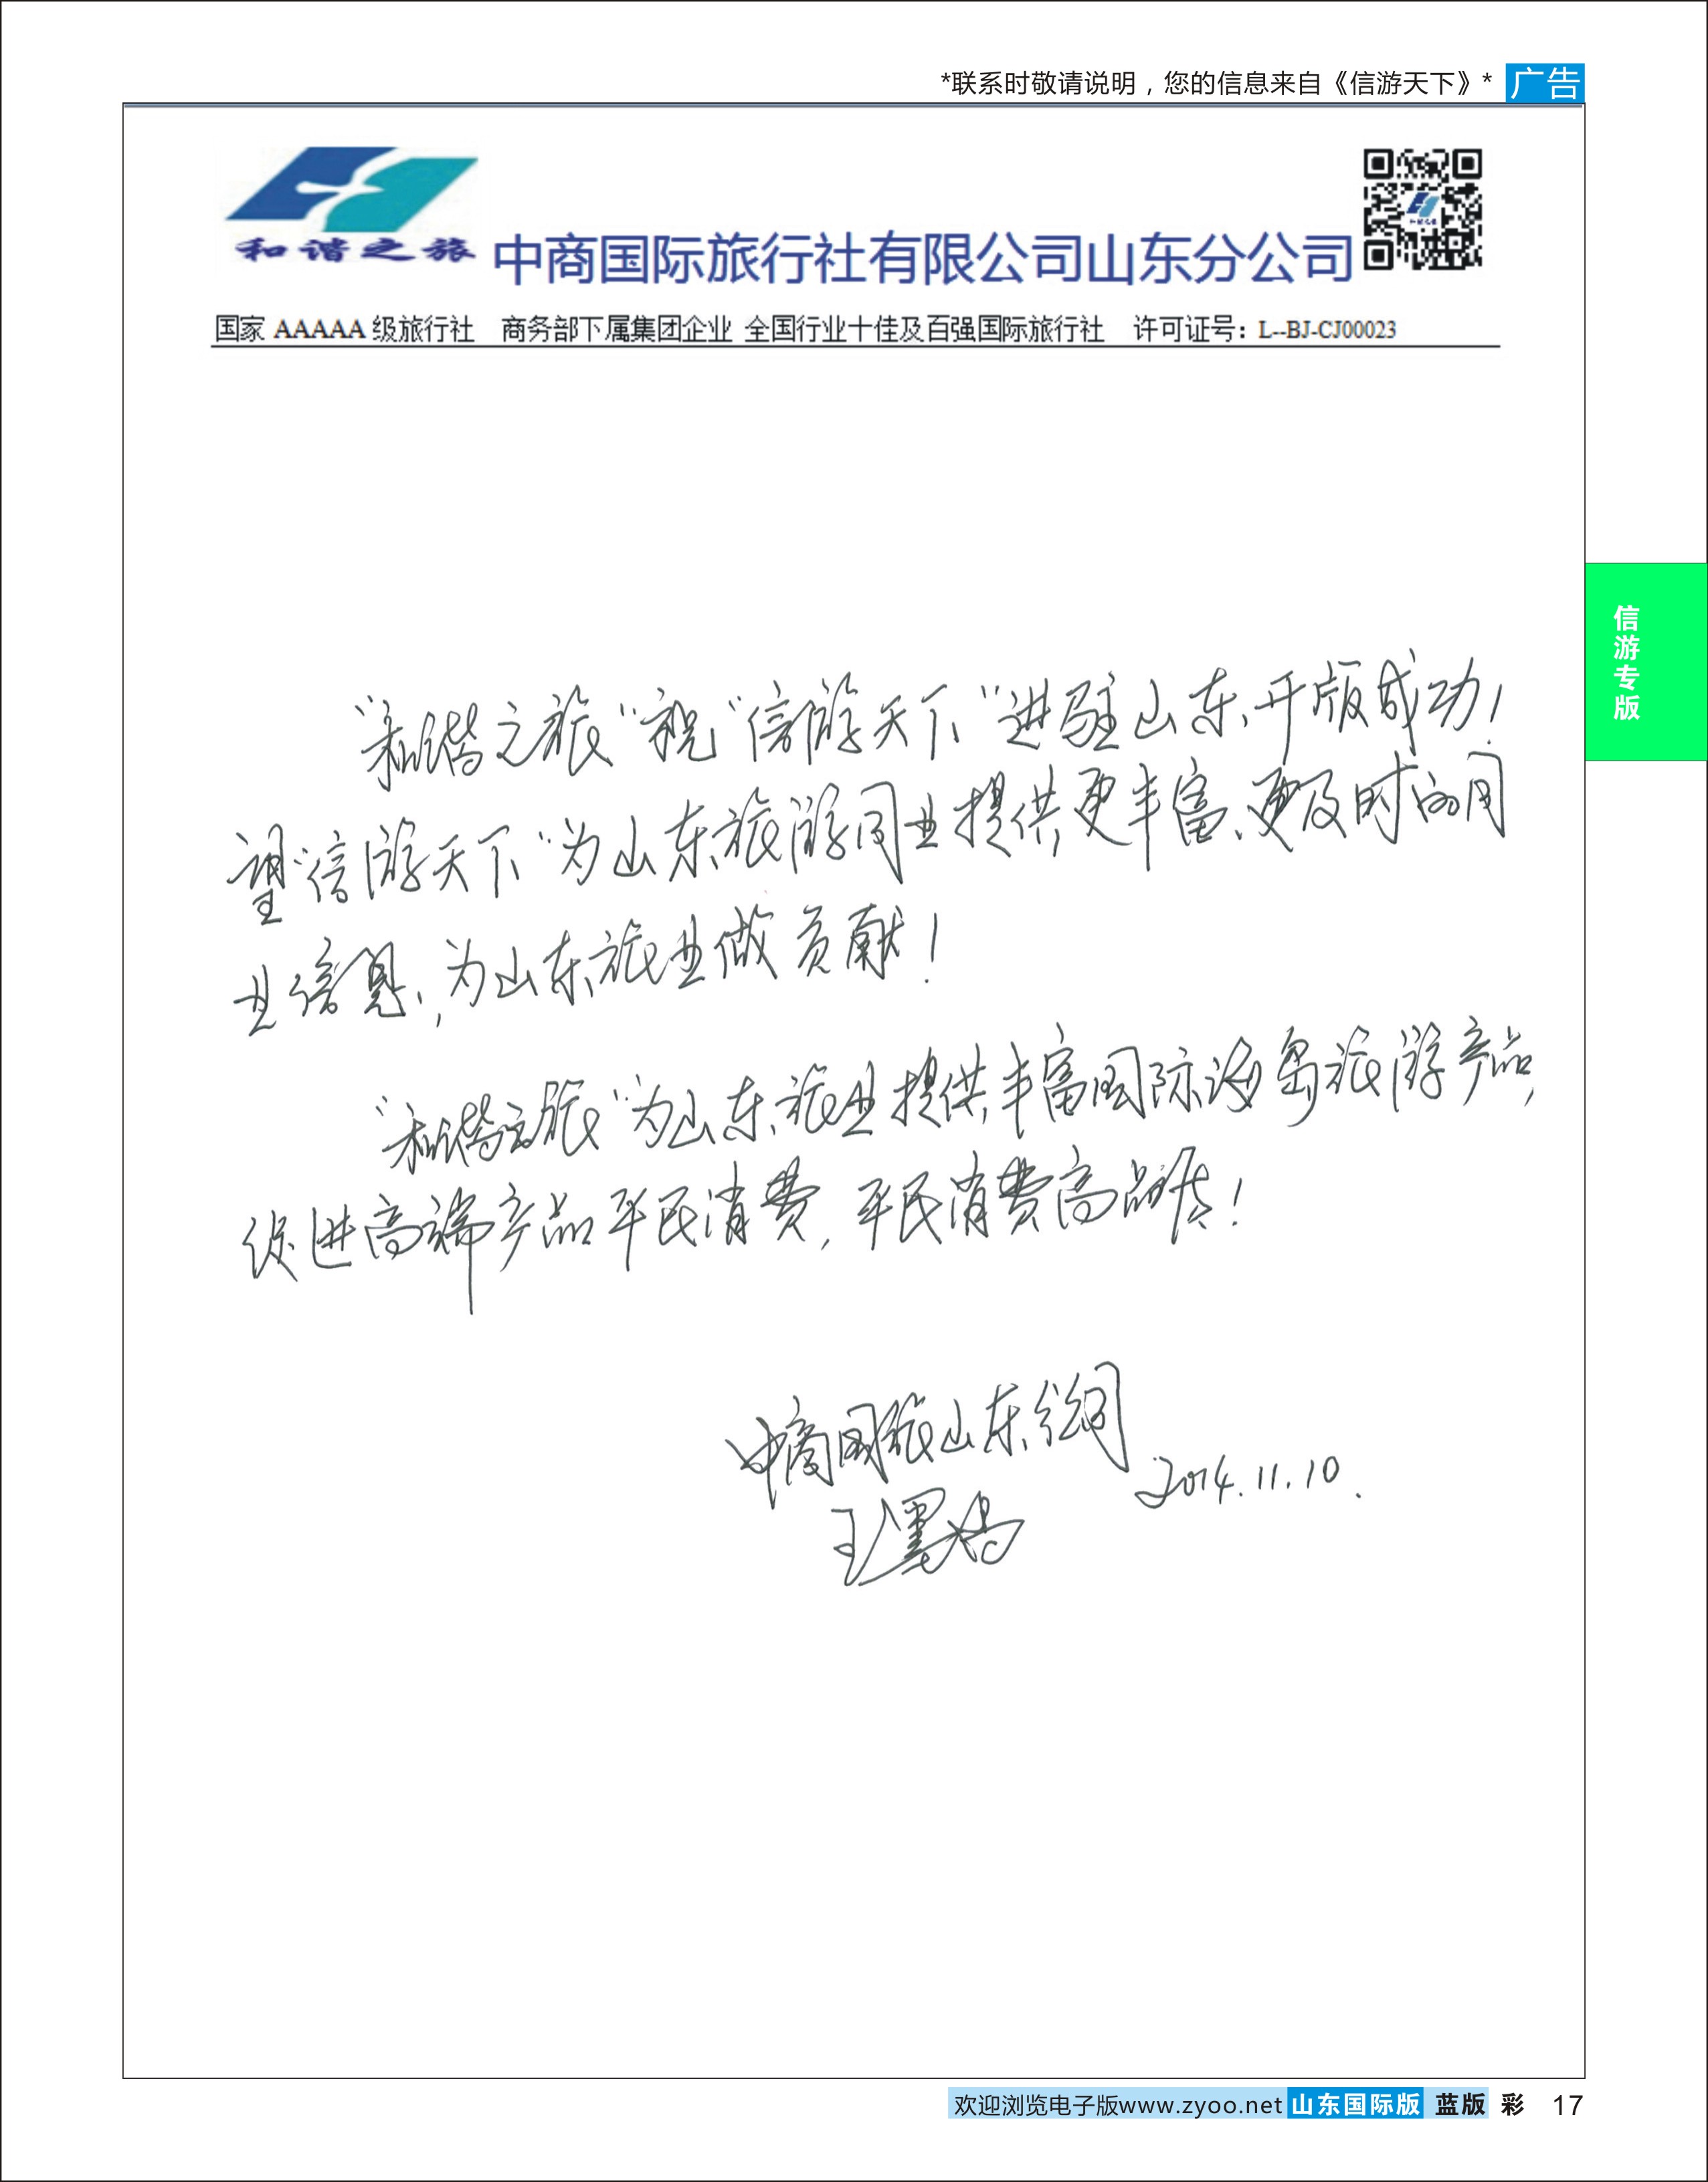 *联系时敬请说明，您的信息来自《信游天下》* 广告
和谐之旅
中商国际旅行社有限公司山东分公司
国家 AAAAA 级旅行社 商务部下属集团企业 全国行业十佳及百强国际旅行社 许可证号：L--BJ-CJ00023
信游专版
"和谐之旅"祝"信游天下"进驻山东、开版成功！
望"信游天下"为山东旅游同业提供更丰富、更及时的同
业信息，为山东旅业做贡献！
"和谐之旅"为山东旅业提供丰富国际海岛旅游产品，
促进高端产品平民消费，平民消费高品质！
中商国旅山东公司
王
2014.11.10.
欢迎浏览电子版www.zyoo.net 山东国际版 蓝版 彩 17